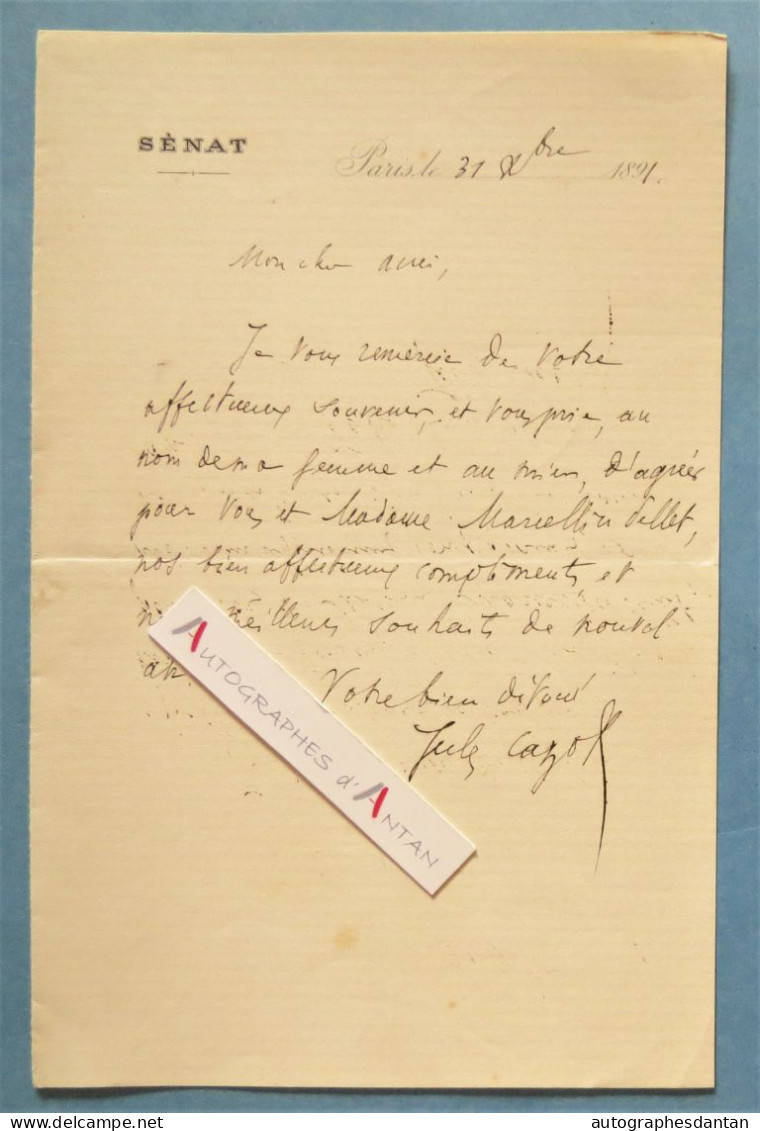 SÈNAT
Paris, le 31 Xbre 1891.
Mon cher ami,
Je vous remercie de votre
affectueux souvenir, et vous prie, au
nom de ma femme et au mien, d'agréer
pour vous et Madame Marcellin Pellet,
nos bien affectueux compliments et
meilleurs souhaits de nouvel
an
Votre bien dévoué
Jules Cazot
AUTOGRAPHES d'ANTAN
autographesdantan